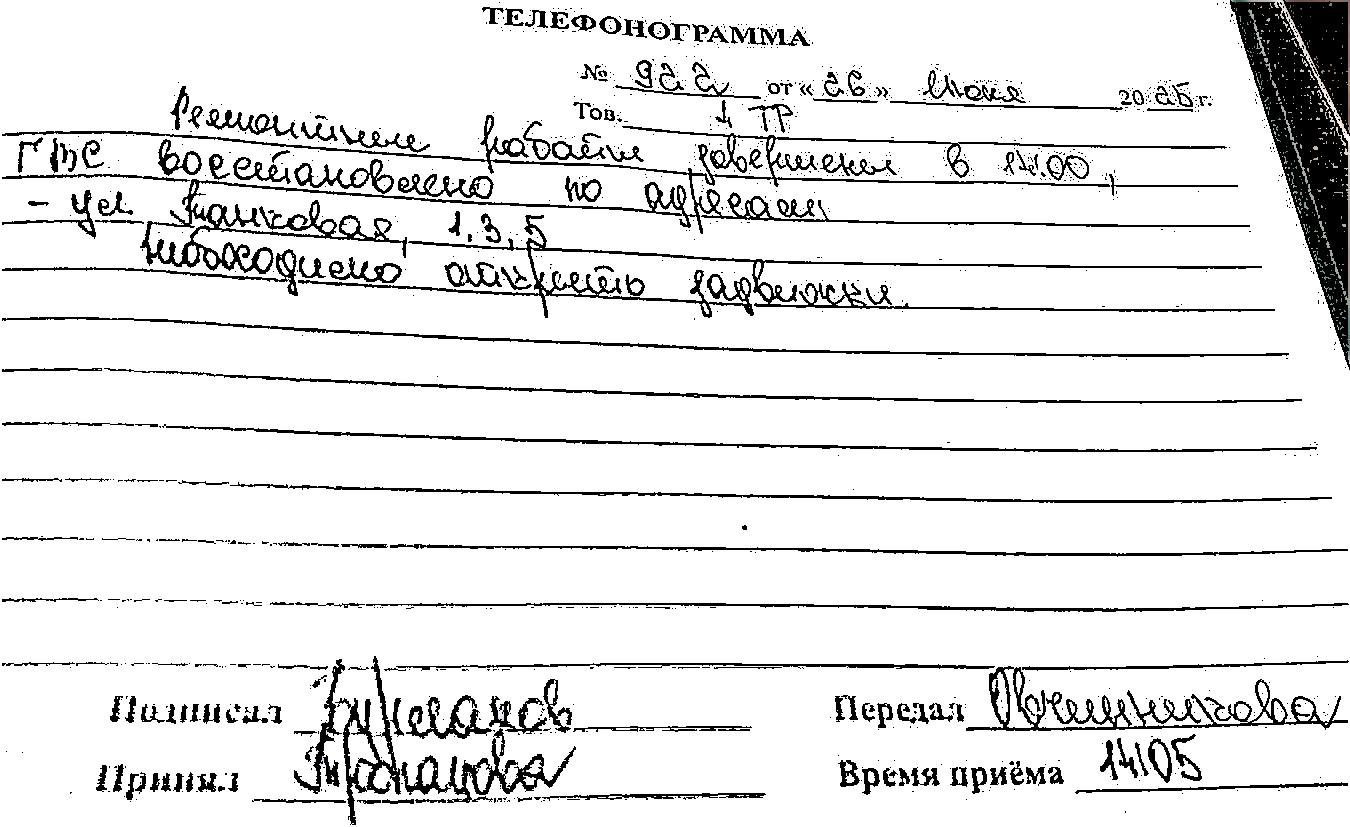 ТЕЛЕФОНОГРАММА
№ 922 от «26» Июня 2025 г.
Тов. 4 ТР
Ремонтные работы завершены в 14.00,
ГВС восстановлено по адресам
- ул. Танковая, 1, 3, 5
Необходимо открыть задвижки.
Подписал
Передал Овчинникова
Принял
Время приёма 14:05